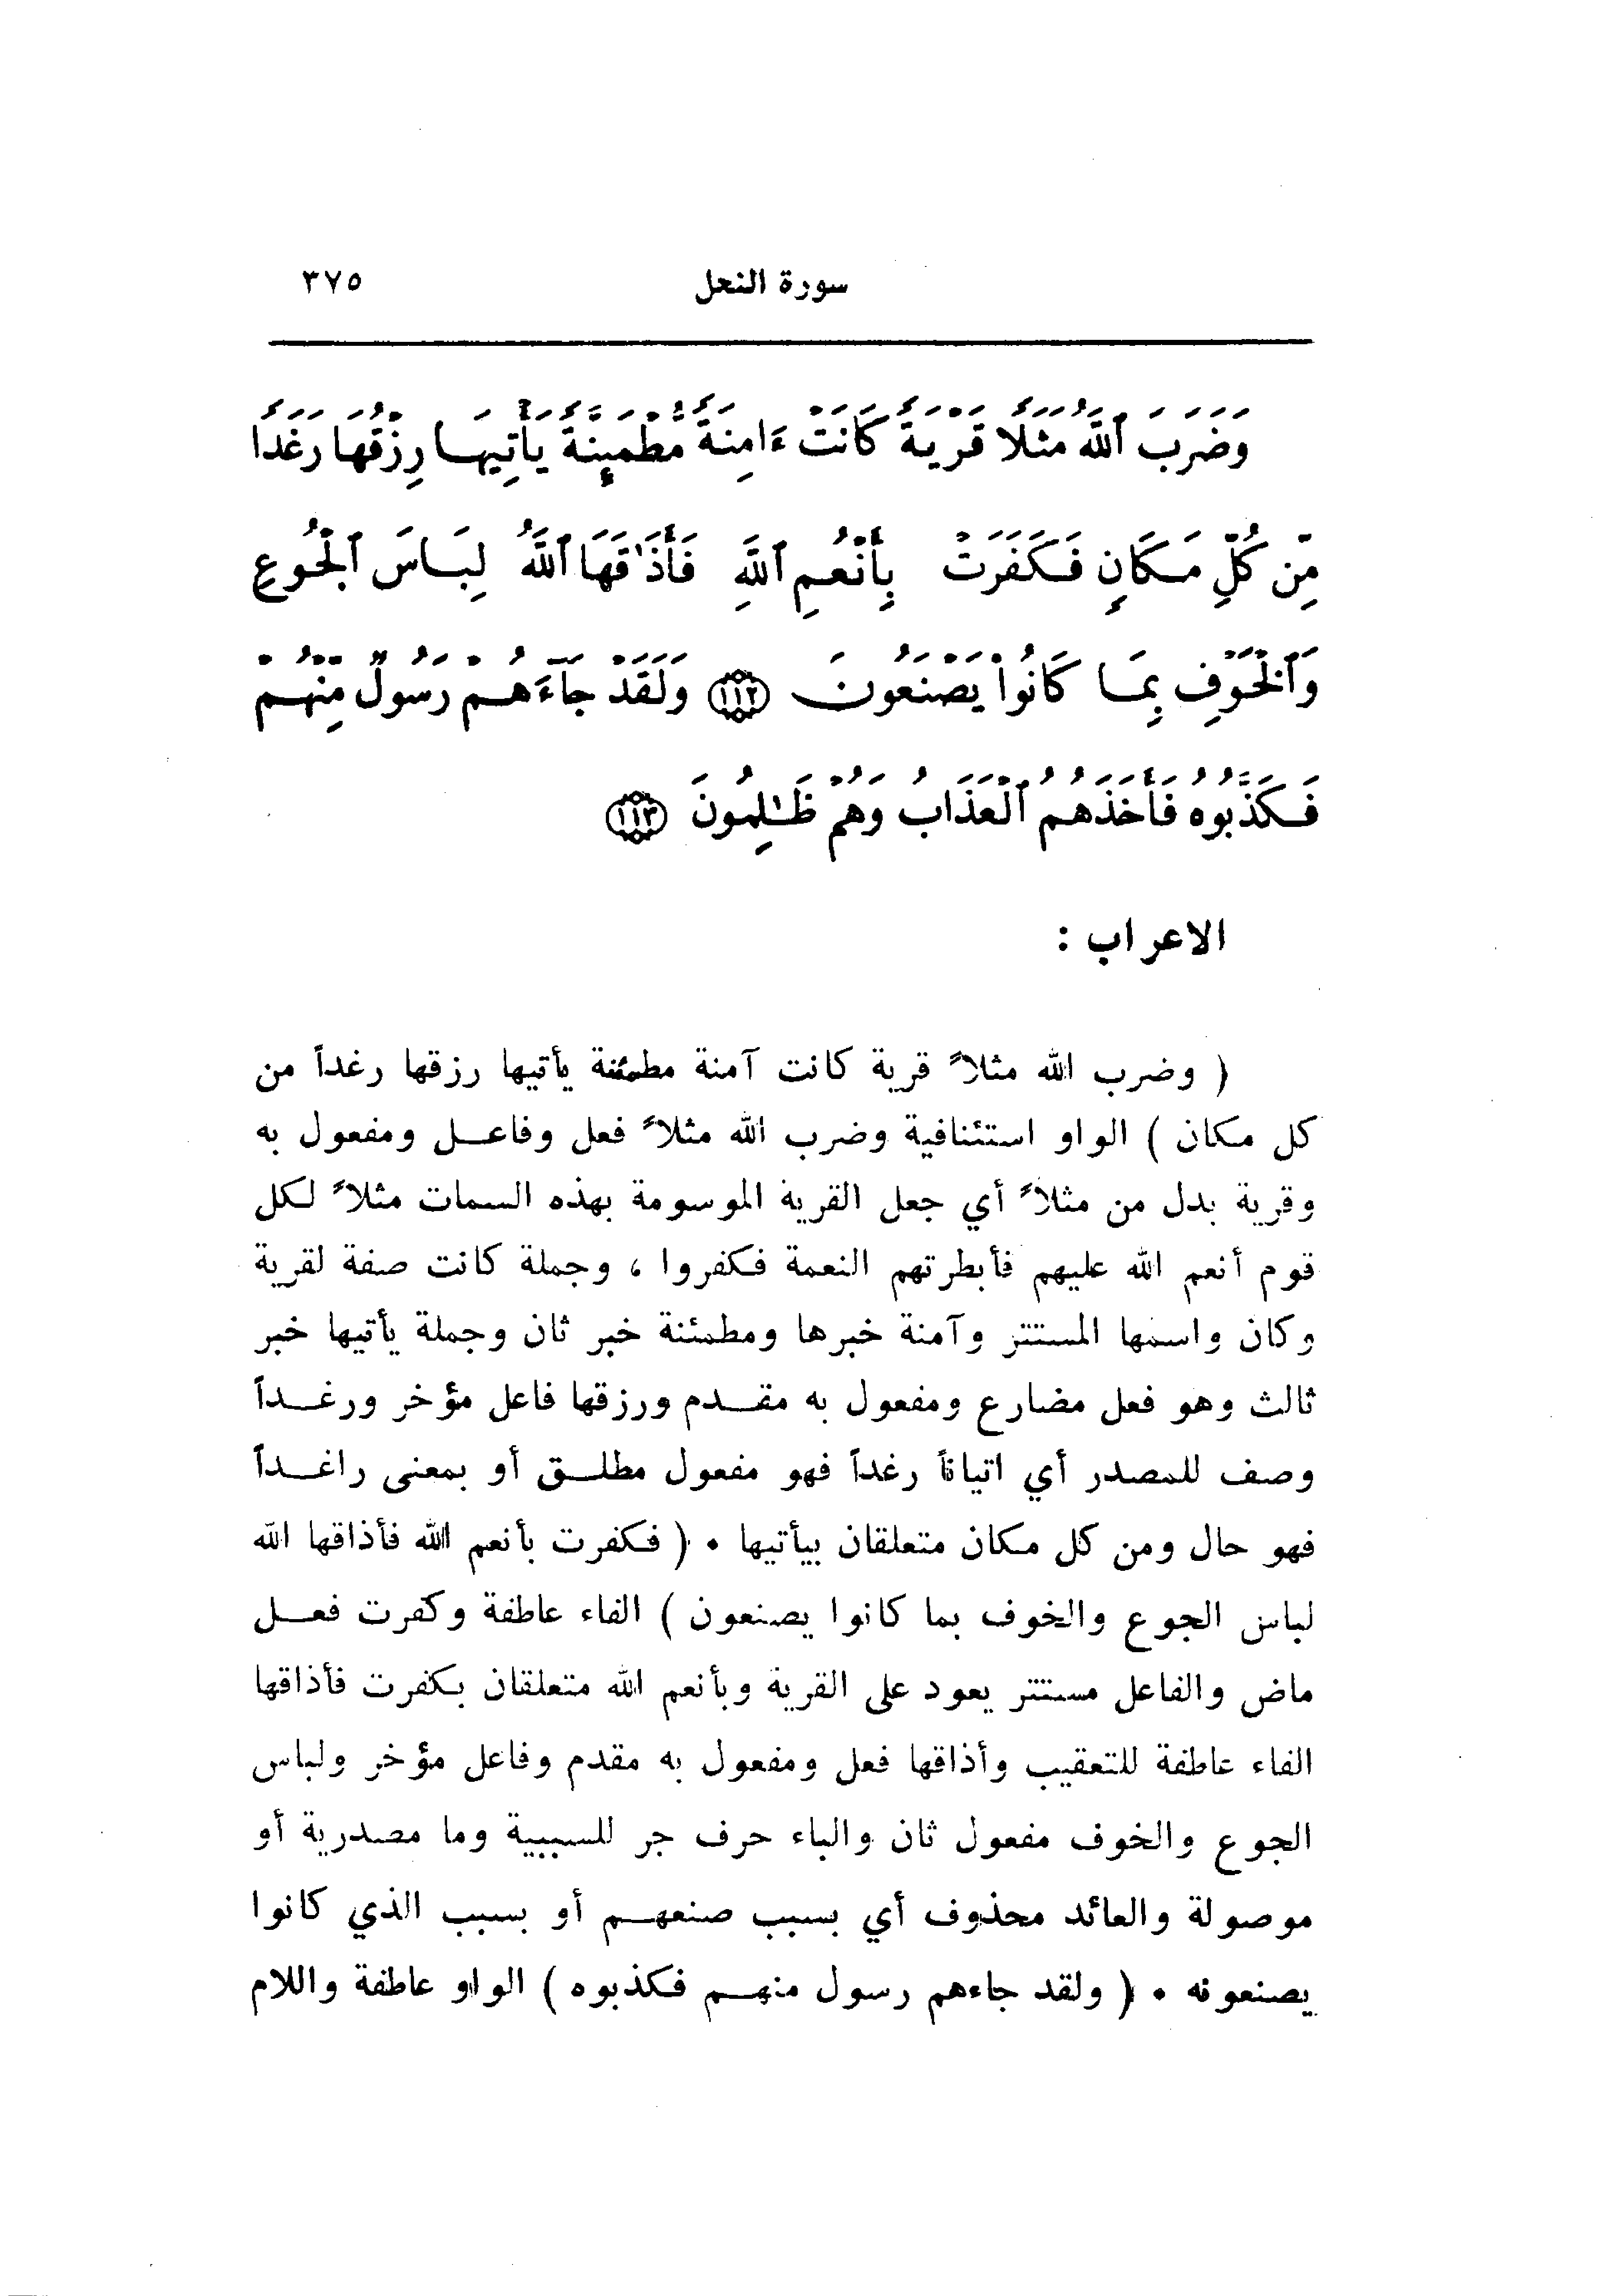 سورة النحل ٣٧٥
وَضَرَبَ ٱللَّهُ مَثَلًا قَرْيَةً كَانَتْ ءَامِنَةً مُّطْمَئِنَّةً يَأْتِيهَا رِزْقُهَا رَغَدًا
مِّن كُلِّ مَكَانٍ فَكَفَرَتْ بِأَنْعُمِ ٱللَّهِ فَأَذَٰقَهَا ٱللَّهُ لِبَاسَ ٱلْجُوعِ
وَٱلْخَوْفِ بِمَا كَانُوا۟ يَصْنَعُونَ ۝١١٢ وَلَقَدْ جَآءَهُمْ رَسُولٌ مِّنْهُمْ
فَكَذَّبُوهُ فَأَخَذَهُمُ ٱلْعَذَابُ وَهُمْ ظَٰلِمُونَ ۝١١٣
الاعراب :
( وضرب الله مثلاً قرية كانت آمنة مطمئنة يأتيها رزقها رغداً من
كل مكان ) الواو استئنافية وضرب الله مثلاً فعل وفاعل ومفعول به
وقرية بدل من مثلاً أي جعل القرية الموسومة بهذه السمات مثلاً لكل
قوم أنعم الله عليهم فأبطرتهم النعمة فكفروا ، وجملة كانت صفة لقرية
وكان واسمها المستتر وآمنة خبرها ومطمئنة خبر ثان وجملة يأتيها خبر
ثالث وهو فعل مضارع ومفعول به مقدم ورزقها فاعل مؤخر ورغداً
وصف للمصدر أي اتياناً رغداً فهو مفعول مطلق أو بمعنى راغداً
فهو حال ومن كل مكان متعلقان بيأتيها . ( فكفرت بأنعم الله فأذاقها الله
لباس الجوع والخوف بما كانوا يصنعون ) الفاء عاطفة وكفرت فعل
ماض والفاعل مستتر يعود على القرية وبأنعم الله متعلقان بكفرت فأذاقها
الفاء عاطفة للتعقيب وأذاقها فعل ومفعول به مقدم وفاعل مؤخر ولباس
الجوع والخوف مفعول ثان والباء حرف جر للسببية وما مصدرية أو
موصولة والعائد محذوف أي بسبب صنعهم أو بسبب الذي كانوا
يصنعونه . ( ولقد جاءهم رسول منهم فكذبوه ) الواو عاطفة واللام